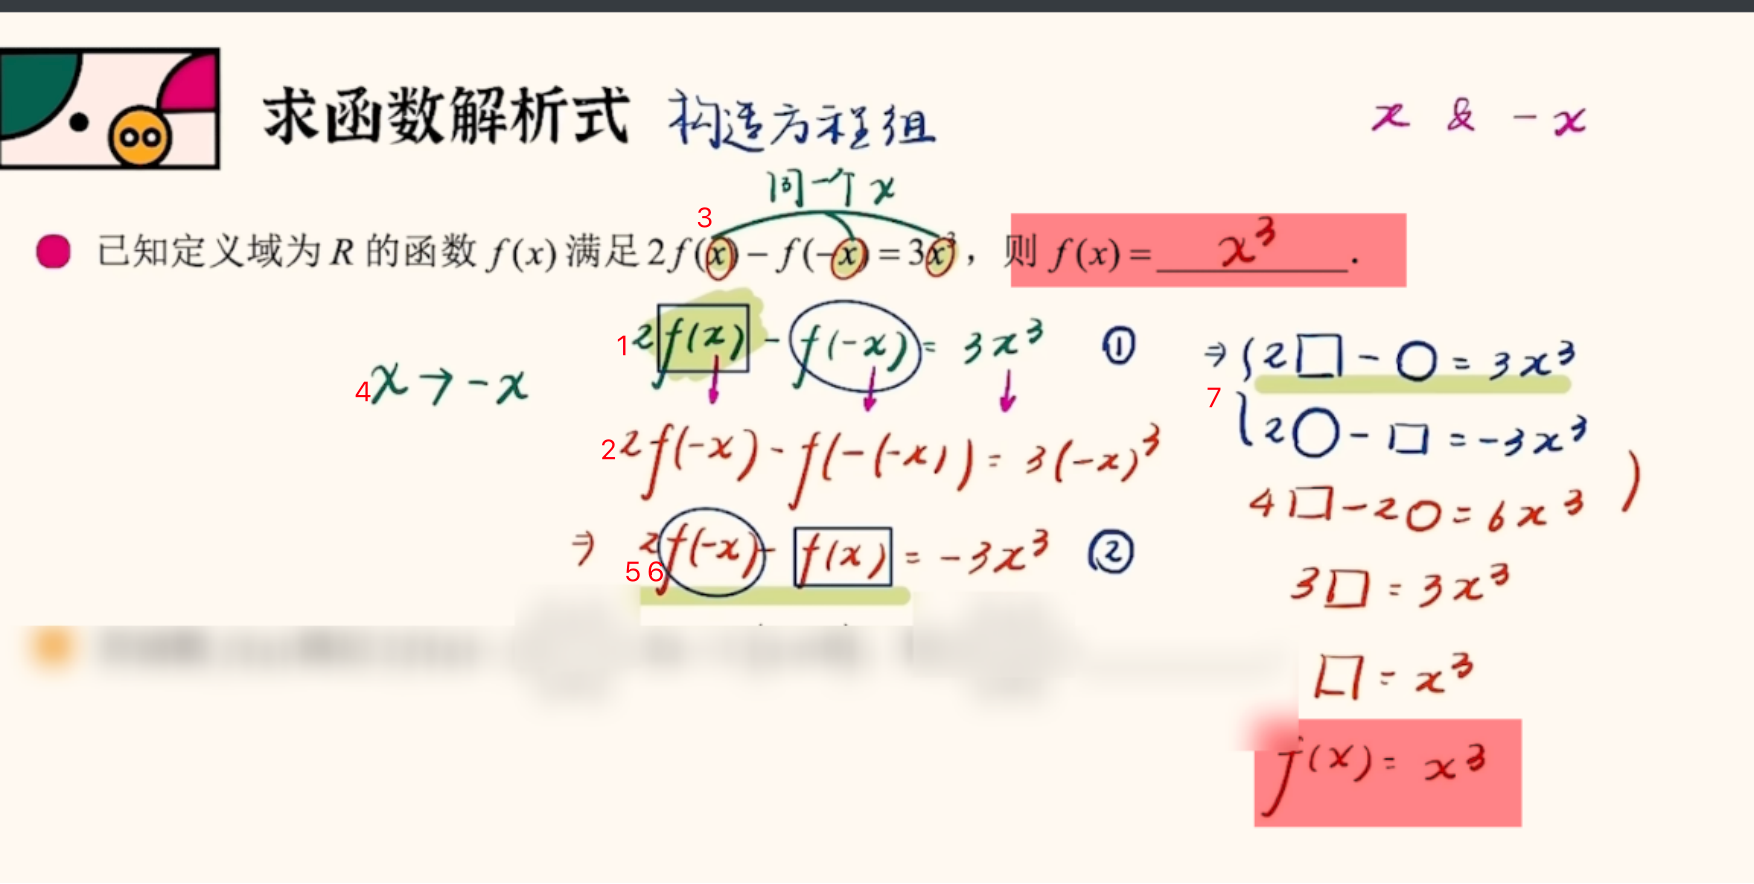 求函数解析式 构造方程组
x & -x
同一个 x
3
已知定义域为 R 的函数 f(x) 满足 2f(x)-f(-x)=3x³，则 f(x)= x³ .
1 2f(x) - f(-x) = 3x³ ①
4 x→-x
2 2f(-x) - f(-(-x)) = 3(-x)³
⇒ 2f(-x) - f(x) = -3x³ ②
5 6
⇒ { 2□ - ○ = 3x³
7
2○ - □ = -3x³
4□ - 2○ = 6x³ )
3□ = 3x³
□ = x³
f(x) = x³